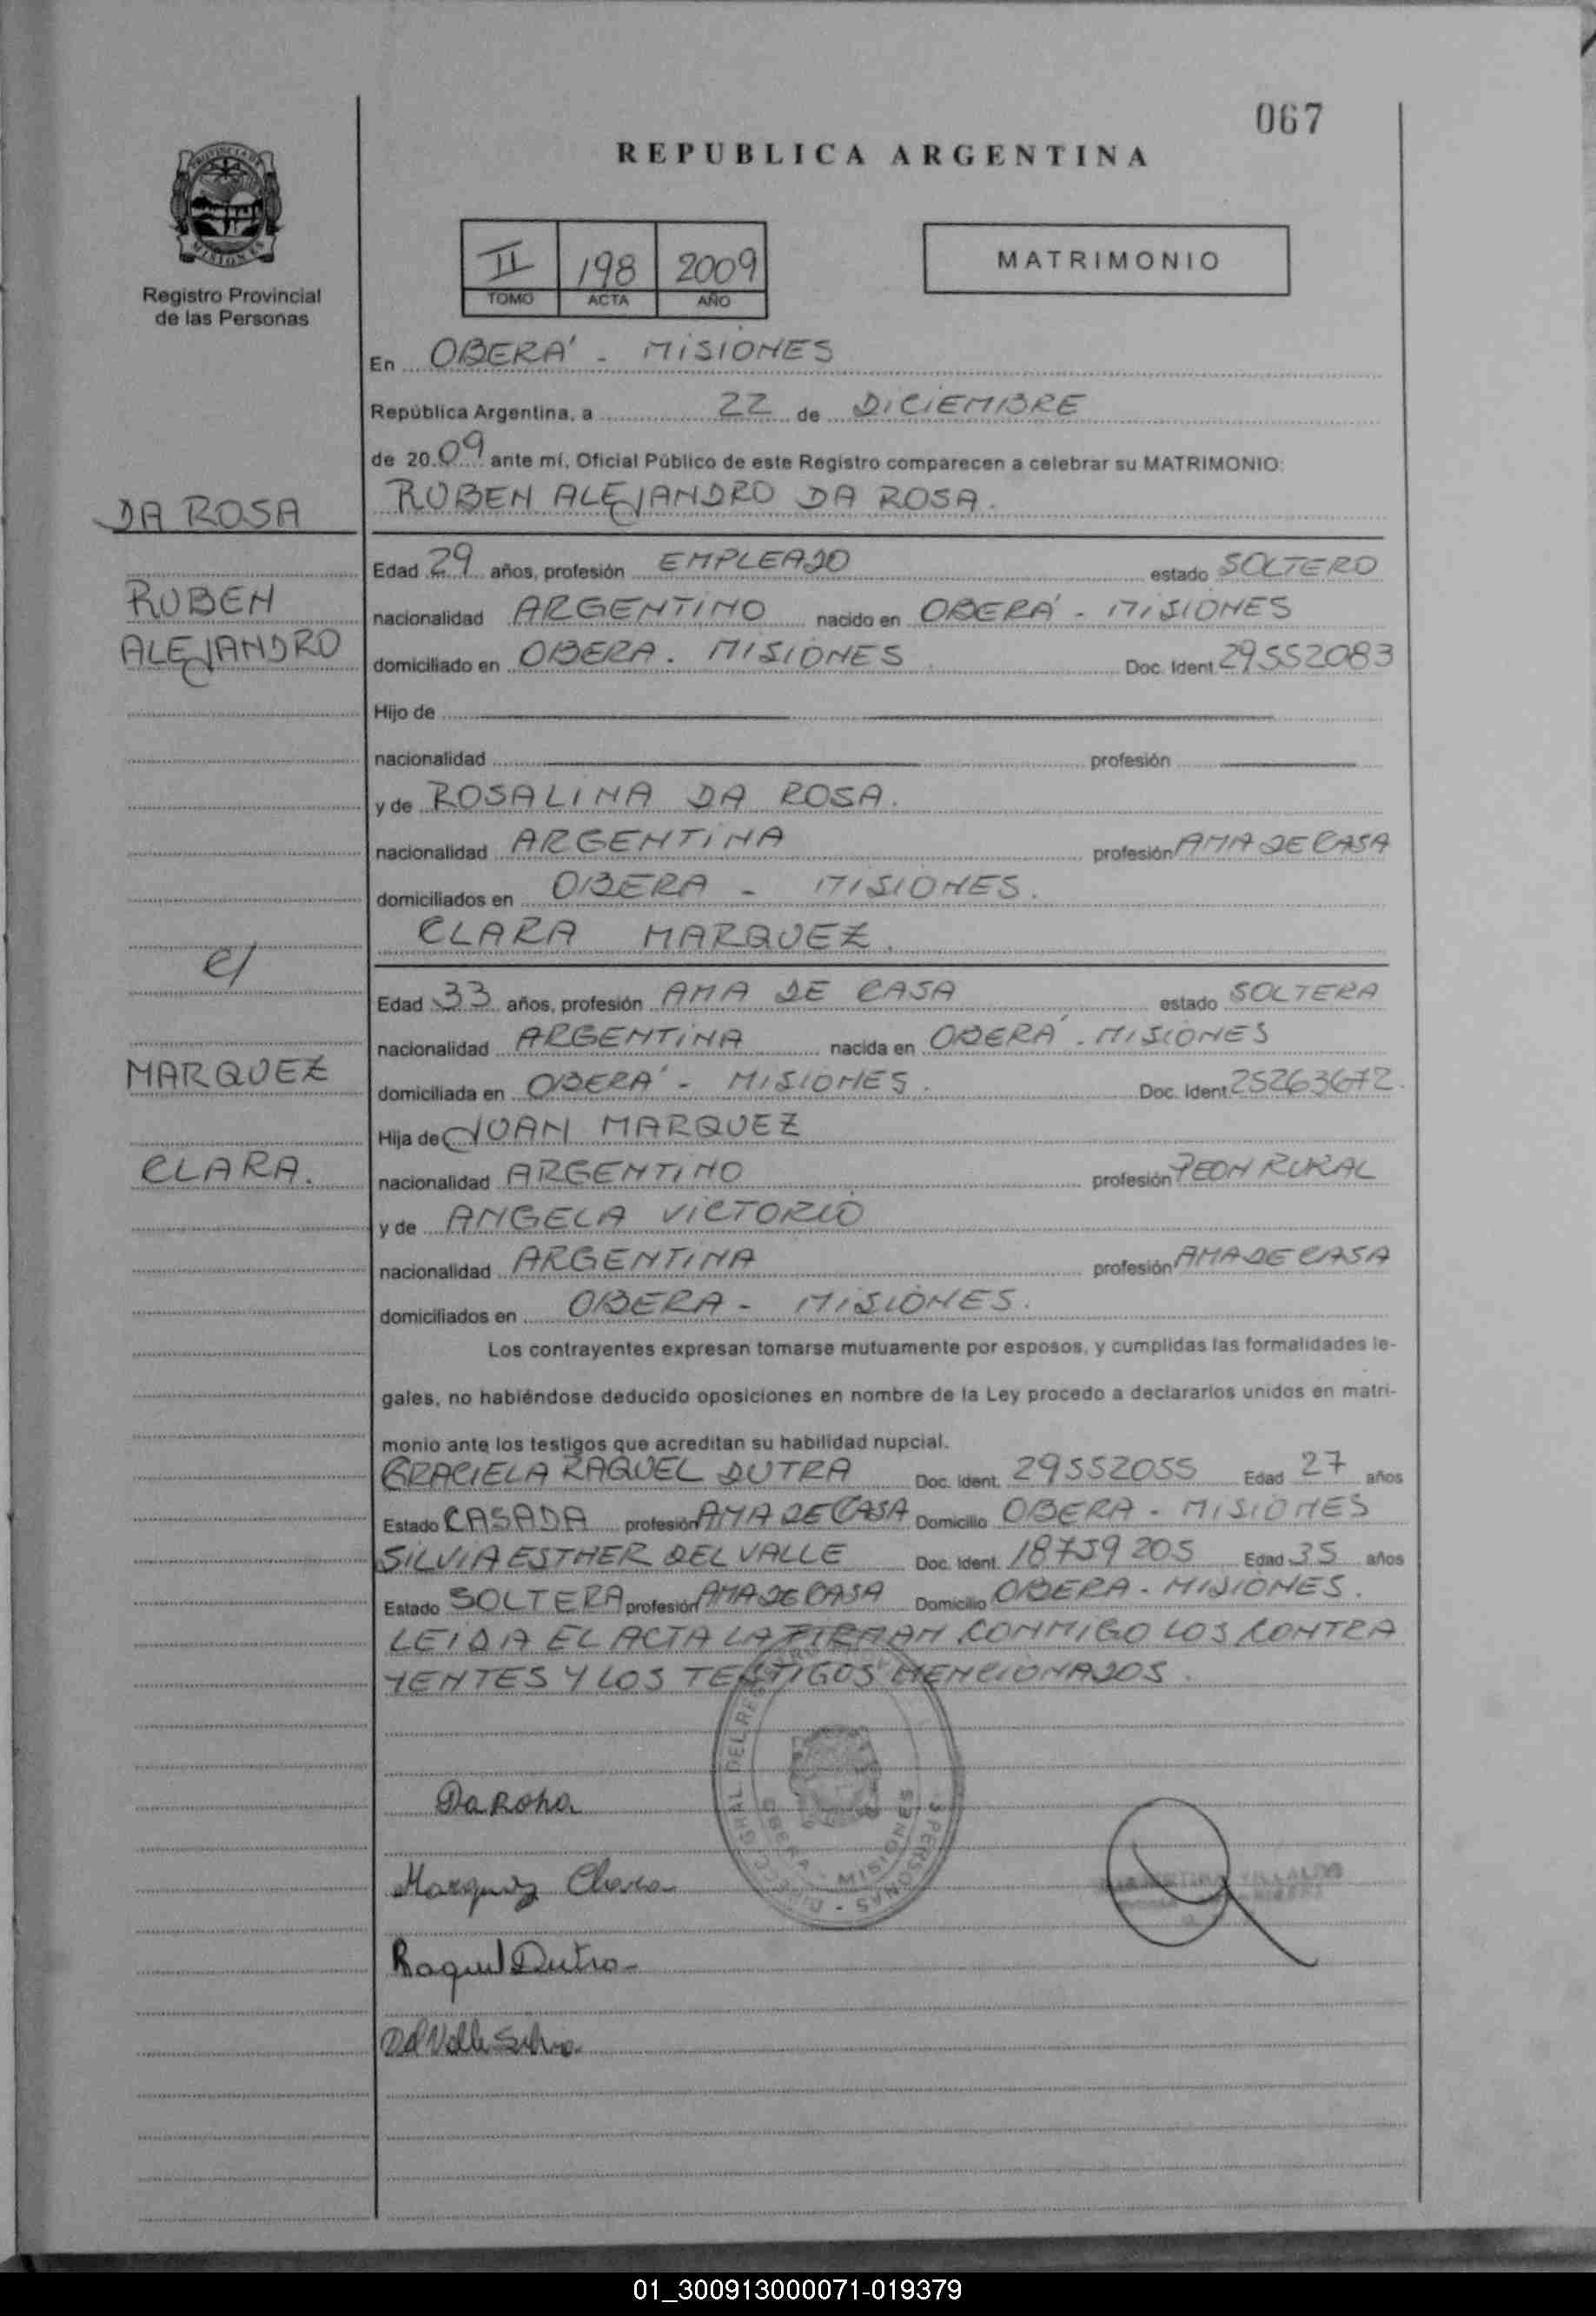 067
REPUBLICA ARGENTINA
PROVINCIA DE
MISIONES
Registro Provincial
de las Personas
II 198 2009
TOMO ACTA AÑO
MATRIMONIO
En OBERA' - MISIONES
República Argentina, a 22 de DICIEMBRE
de 2009 ante mí, Oficial Público de este Registro comparecen a celebrar su MATRIMONIO:
DA ROSA
RUBEN ALEJANDRO DA ROSA.
Edad 29 años, profesión EMPLEADO estado SOLTERO
RUBEN
nacionalidad ARGENTINO nacido en OBERA' - MISIONES
ALEJANDRO
domiciliado en OBERA. MISIONES Doc. Ident. 29552083
Hijo de
nacionalidad profesión
y de ROSALINA DA ROSA.
nacionalidad ARGENTINA profesión AMA DE CASA
domiciliados en OBERA - MISIONES.
CLARA MARQUEZ.
C/
Edad 33 años, profesión AMA DE CASA estado SOLTERA
nacionalidad ARGENTINA nacida en OBERA' - MISIONES
MARQUEZ
domiciliada en OBERA' - MISIONES. Doc. Ident. 25263672.
Hija de JUAN MARQUEZ
CLARA.
nacionalidad ARGENTINO profesión PEON RURAL
y de ANGELA VICTORIO
nacionalidad ARGENTINA profesión AMA DE CASA
domiciliados en OBERA - MISIONES.
Los contrayentes expresan tomarse mutuamente por esposos, y cumplidas las formalidades le-
gales, no habiéndose deducido oposiciones en nombre de la Ley procedo a declararlos unidos en matri-
monio ante los testigos que acreditan su habilidad nupcial.
GRACIELA RAQUEL DUTRA Doc. Ident. 29552055 Edad 27 años
Estado CASADA profesión AMA DE CASA Domicilio OBERA - MISIONES
SILVIA ESTHER DEL VALLE Doc. Ident. 18759205 Edad 35 años
Estado SOLTERA profesión AMA DE CASA Domicilio OBERA - MISIONES.
LEIDA EL ACTA LA FIRMAN CONMIGO LOS CONTRA
YENTES Y LOS TESTIGOS MENCIONADOS.
OBERA - MISIONES
Da Rosa
Marquez Clara
Raquel Dutra
Del Valle Silvia
01_300913000071-019379